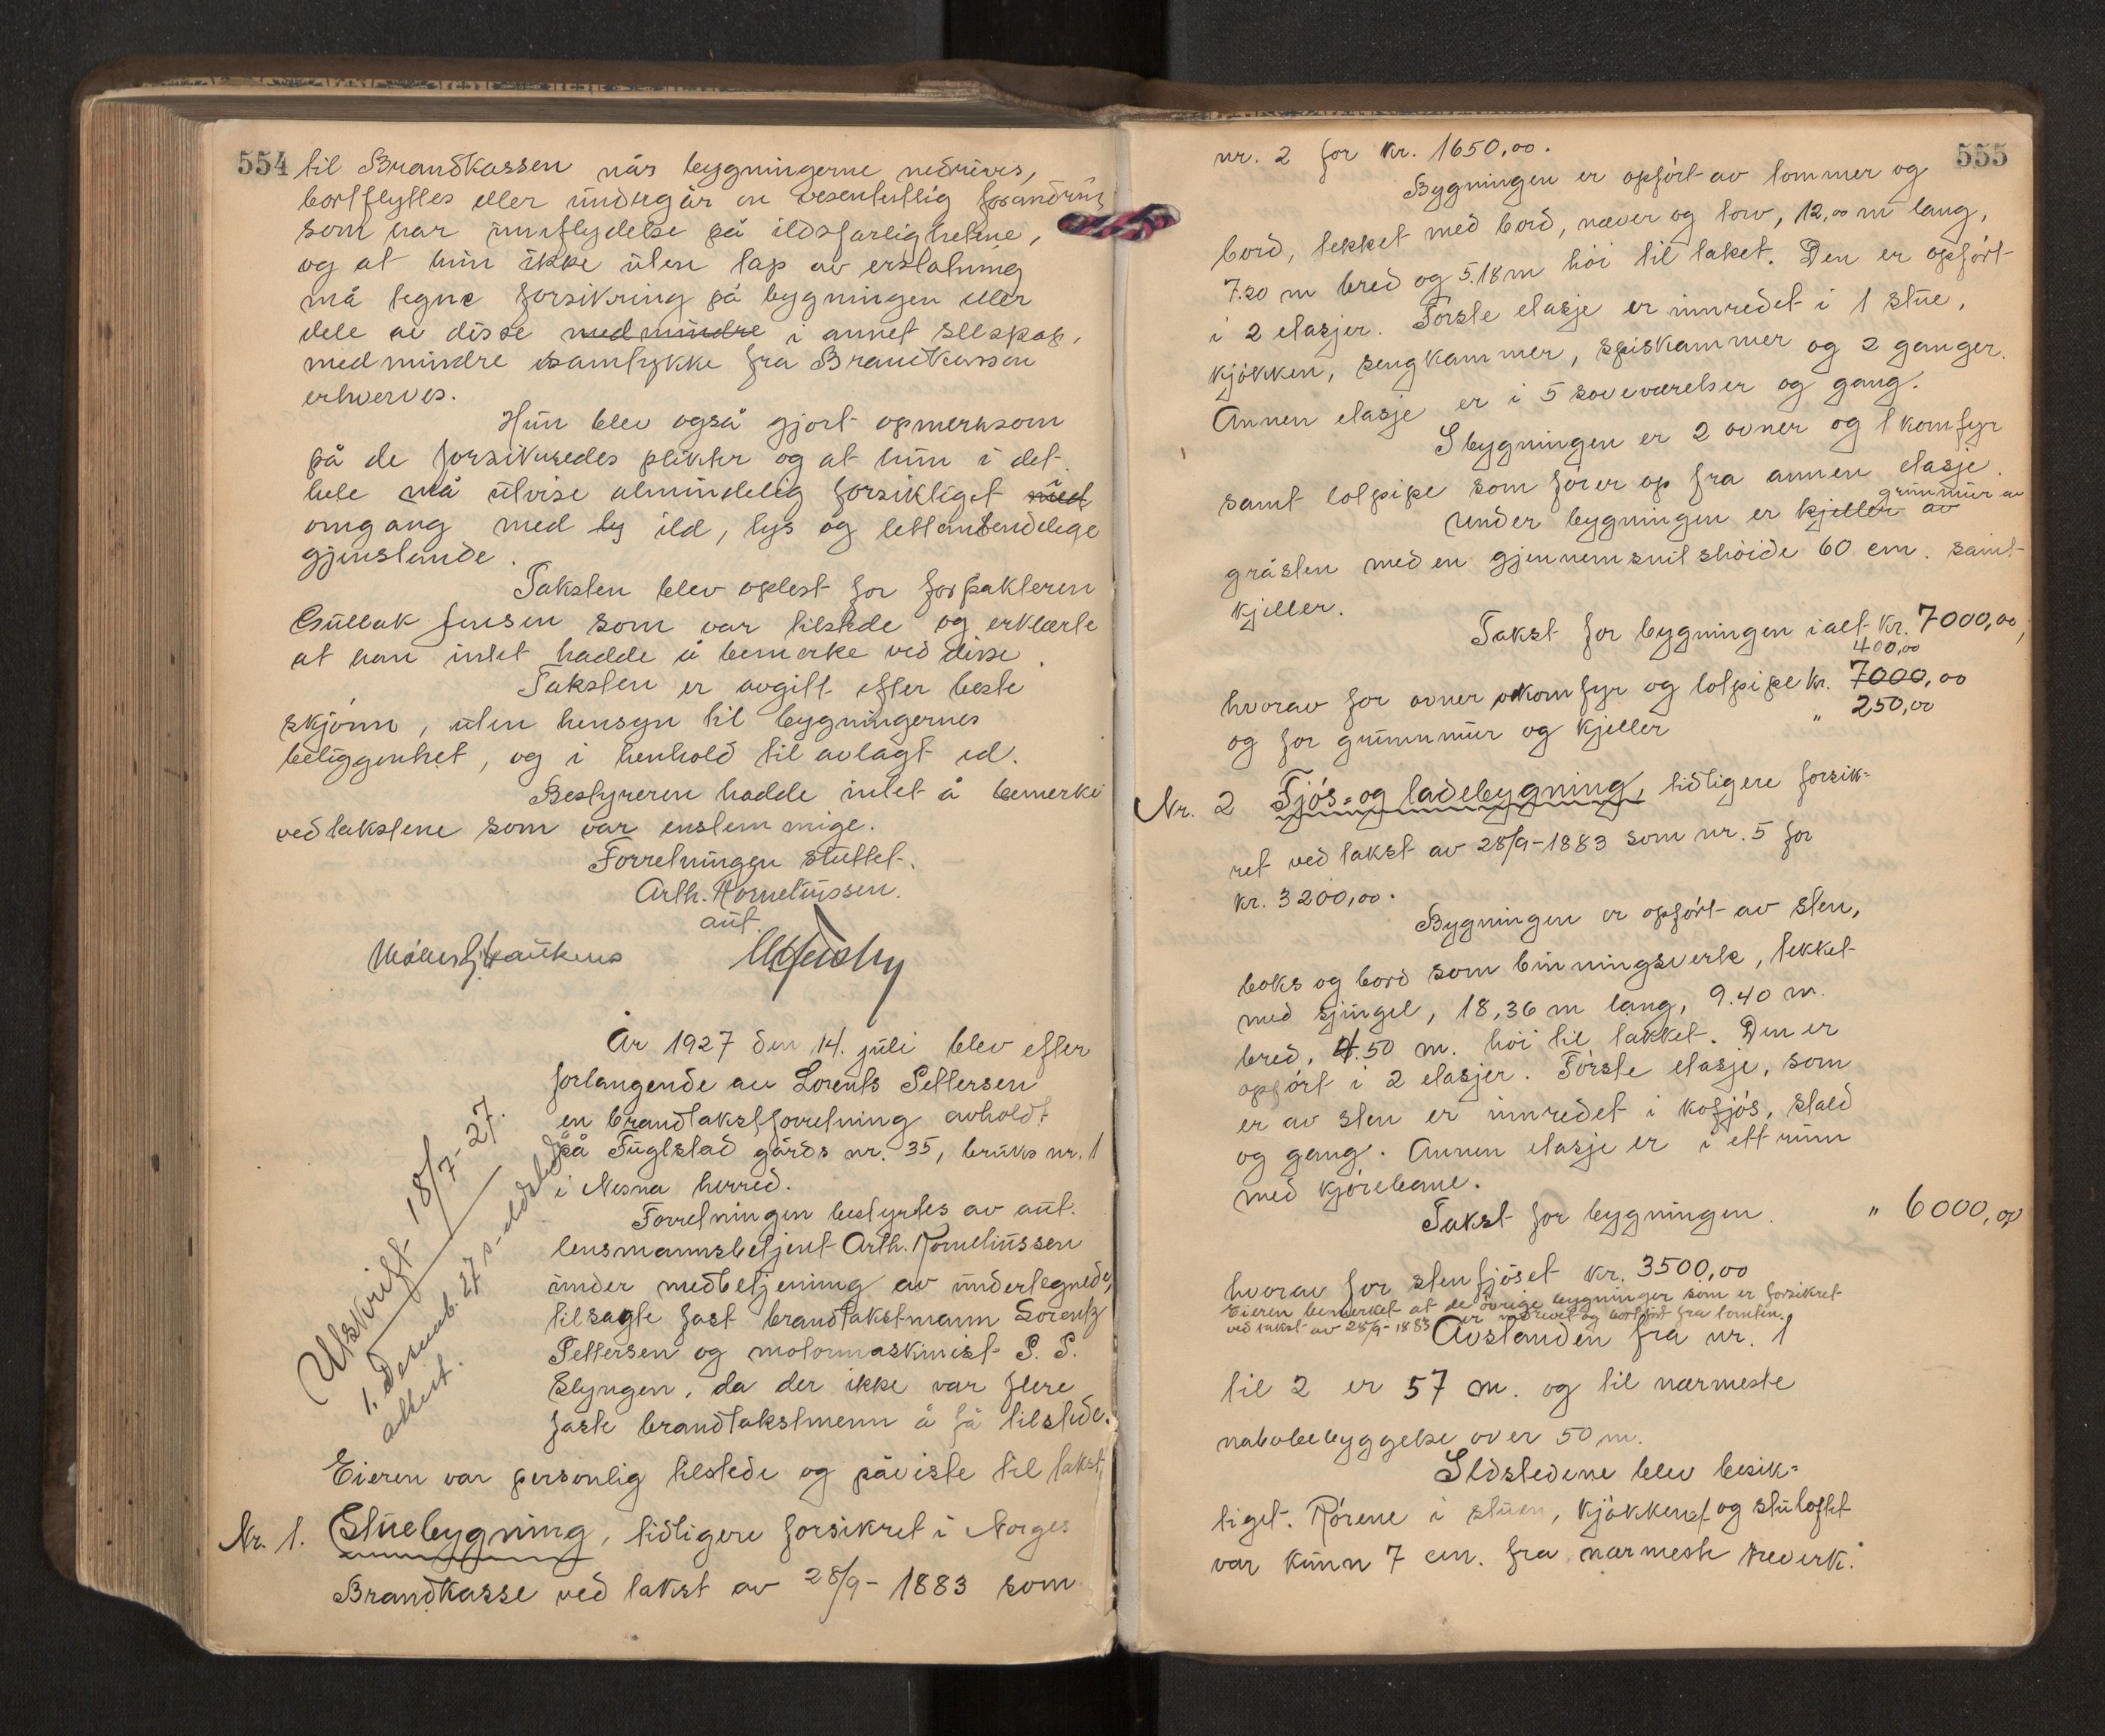 554
til Brandkassen når bygningerne nedrives,
bortflyttes eller undergår en vesentlig forandring
som har innflydelse på ildsfarligheten,
og at hun ikke uten tap av erstatning
må tegne forsikring på bygningen eller
dele av disse medmindre i annet selskap,
medmindre samtykke fra Brandkassen
erhverves.
Hun blev også gjort opmerksom
på de forsikredes plikter og at hun i det
hele må utvise almindelig forsiktiget med i
omgang med ly ild, lys og lettantendelege
gjenstande.
Taksten blev oplest for forpakteren
Gullak Jensen som var tilstede og erklærte
at han intet hadde å bemerke ved disse.
Taksten er avgitt efter beste
skjønn, uten hensyn til bygningernes
beliggenhet, og i henhold til avlagt ed.
Bestyreren hadde intet å bemerke
ved takstene som var enstemmige.
Forretningen sluttet.
Arth. Korneliussen.
aut.
År 1927 den 14. juli blev efter
forlangende av Lorents Pettersen
en brandtakstforretning avholdt
på Fuglstad gårds nr. 35, bruks nr. 1
i Nesna herred.
Forretningen bestyrtes av aut.
lensmannsbetjent Arth. Korneliussen
under medbetjening av undertegnede,
tilsagte fast brandtakstmann Lorentz
Pettersen og motormaskinist P. P.
Slyngen, da der ikke var flere
faste brandtakstmenn å få tilstede.
Utskrift 18/7-27.
1. Desemb. 27
attest.
Eieren var personlig tilstede og påviste til takst
Nr. 1. Stuebygning, tidligere forsikret i Norges
Brandkasse ved takst av 28/9-1883 som
555
nr. 2 for kr. 1650,00.
Bygningen er opført av tømmer og
bord, tekket med bord, næver og torv, 12,00 m lang,
7.20 m bred og 5.18 m høi til taket. Den er opført
i 2 etasjer. Første etasje er innredet i 1 stue,
kjøkken, sengkammer, spiskammer og 2 ganger.
Annen etasje er i 5 soveværelser og gang.
I bygningen er 2 ovner og 1 komfyr
samt lotpipe som fører op fra annen etasje.
Under bygningen er kjeller av grunnmur av
gråsten med en gjennemsnitshøide 60 cm. samt
kjeller.
Takst for bygningen ialt kr. 7000,00,
400,00
hvorav for ovner komfyr og lotpipe kr. 7000,00
og for grunnmur og kjeller " 250,00
Nr. 2 Fjøs- og ladebygning, tidligere forsik-
ret ved takst av 28/9-1883 som nr. 5 for
kr. 3200,00.
Bygningen er opført av sten,
boks og bord som binningsverk, tekket
med sjingel, 18,36 m lang, 9.40 m.
bred, 4.50 m. høi til takket. Den er
opført i 2 etasjer. Første etasje, som
er av sten er innredet i kofjøs, stald
og gang. Annen etasje er i ett rum
med kjørebane.
Takst for bygningen " 6000,00
hvorav for stenfjøset kr. 3500,00
Eieren bemerket at de øvrige bygninger som er forsikret
ved takst av 28/9-1883 er nedrevet og bortført fra tomten.
Avstanden fra nr. 1
til 2 er 57 m. og til nærmeste
nabobebyggelse over 50 m.
Ildstedene blev besik-
tiget. Rørene i stuen, kjøkkenet og stuloftet
var kunn 7 cm. fra nærmeste treverk.